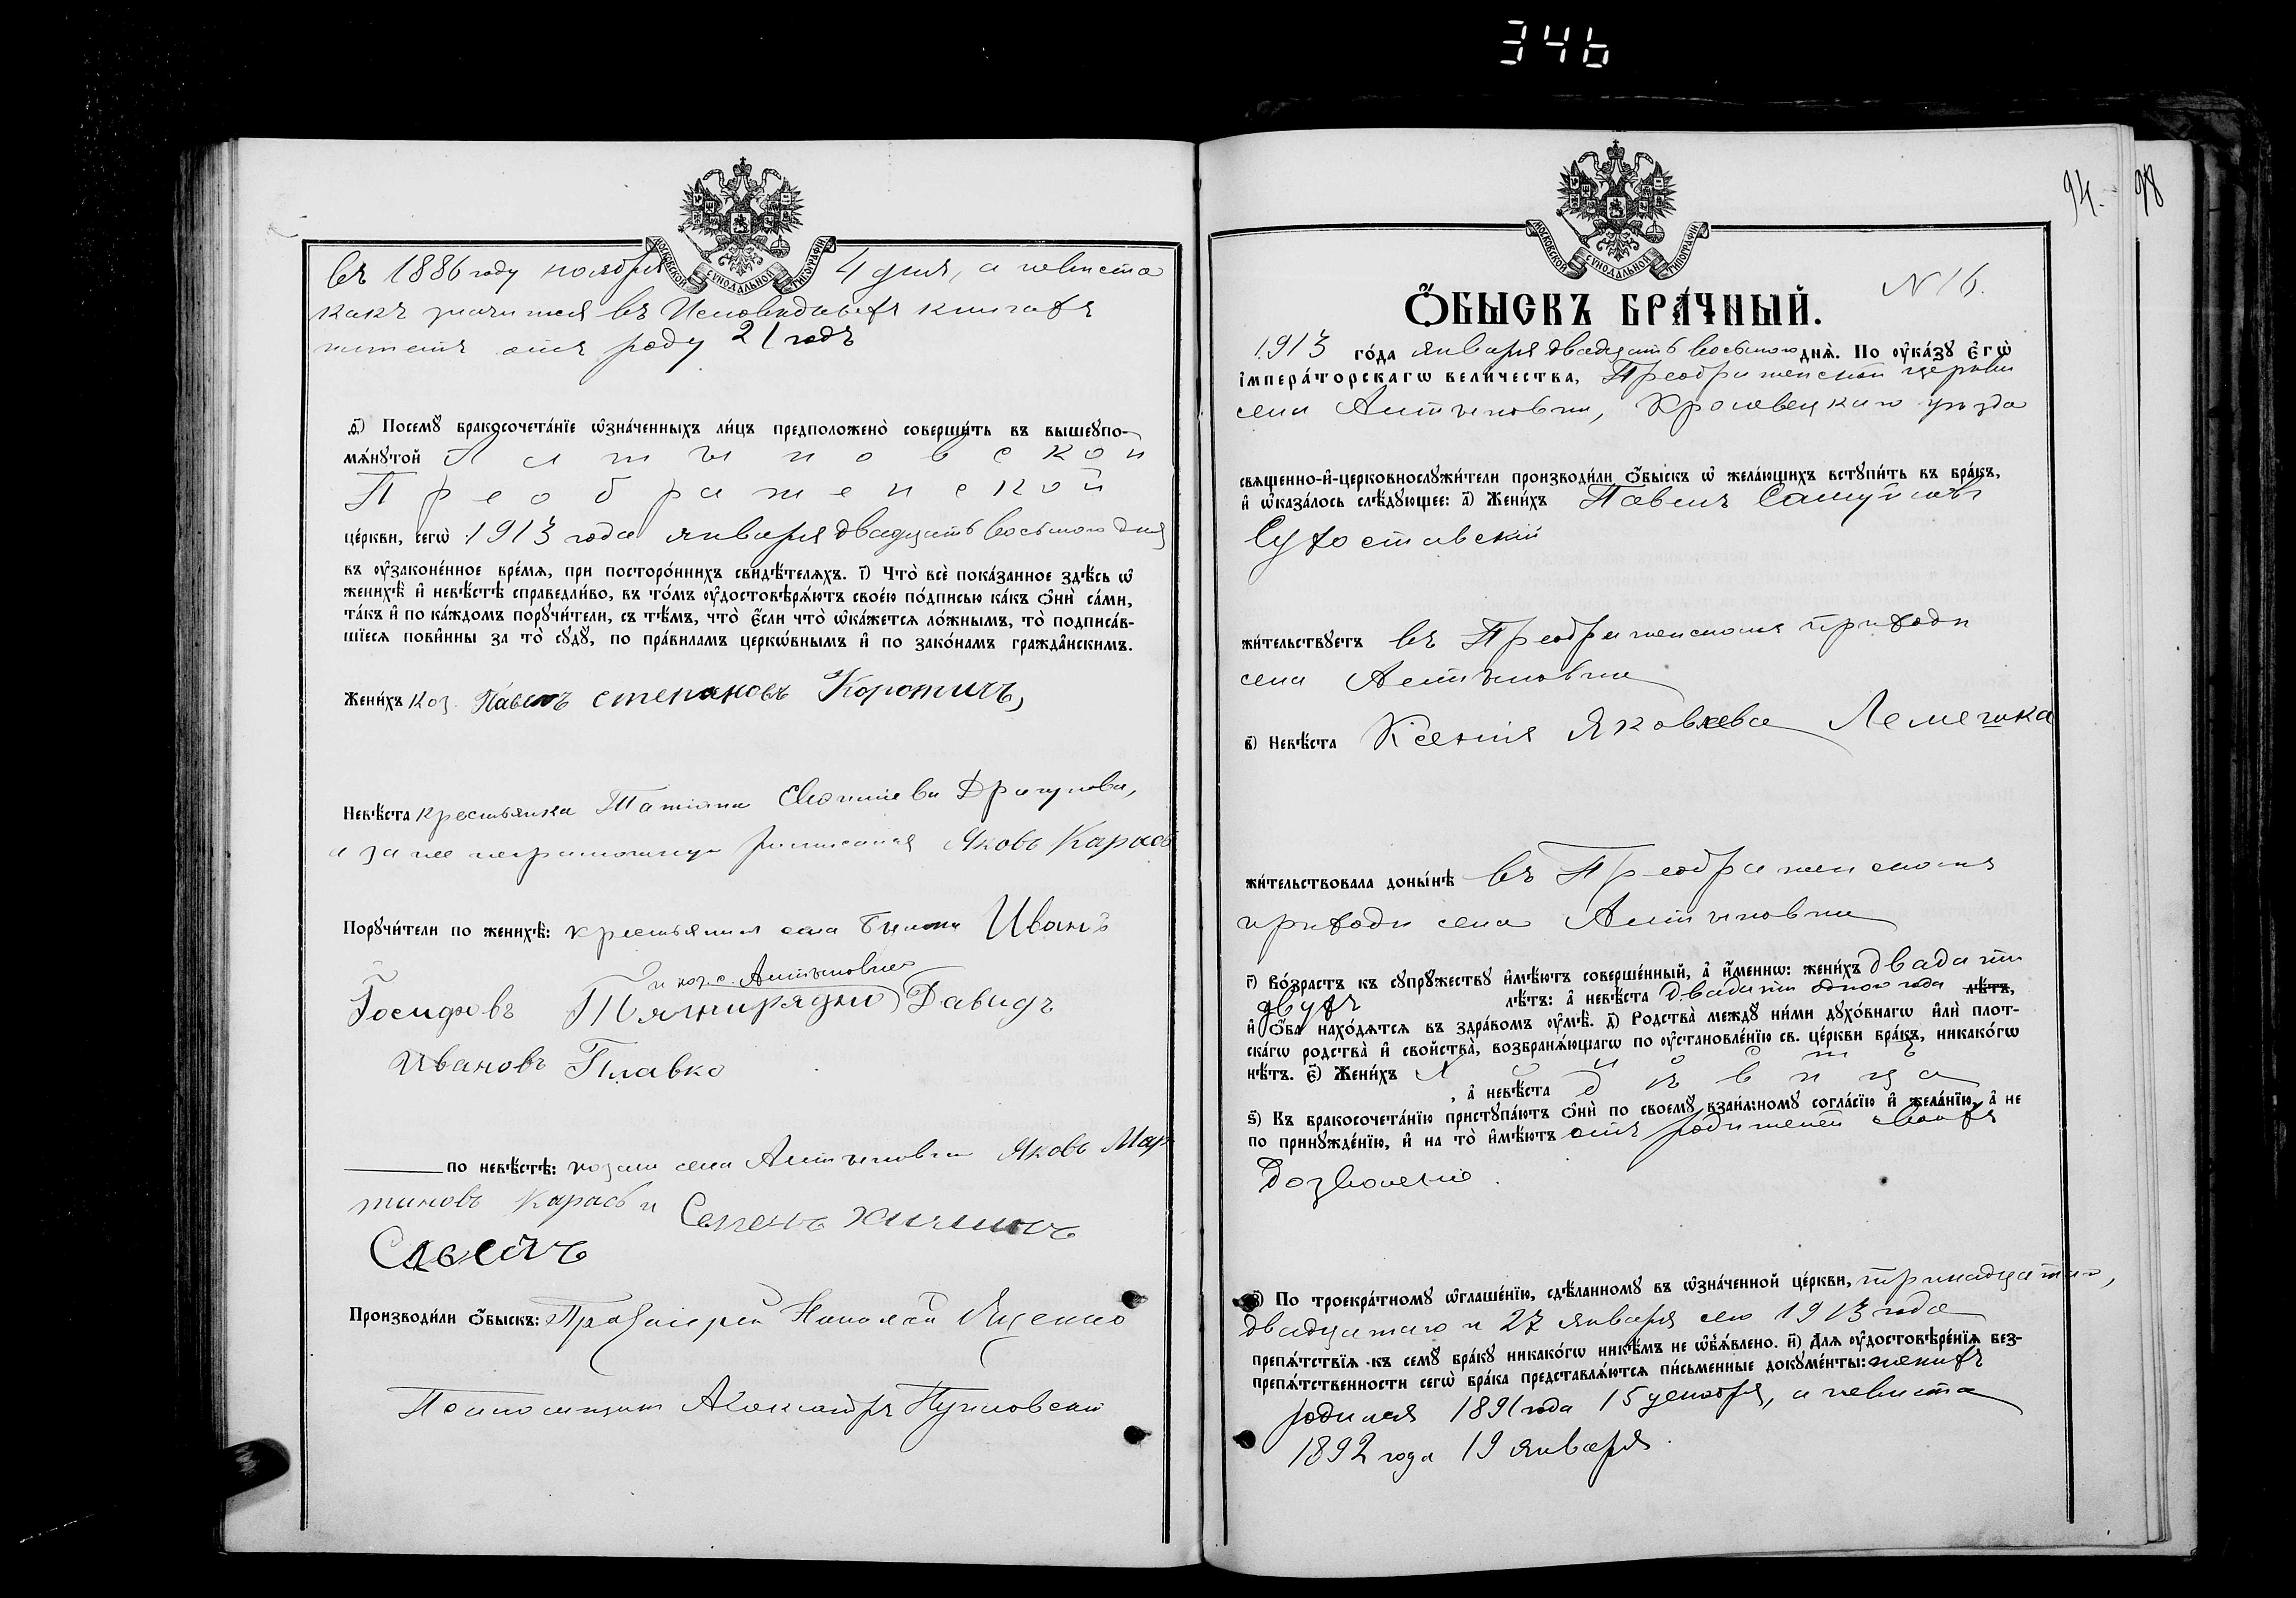 346
МОСКОВСКОЙ СУНОДАЛЬНОЙ ТИПОГРАФІИ
въ 1886 году ноября 4 дня, а невѣста
какъ значится въ Исповѣдныхъ книгахъ
имѣетъ отъ роду 21 годъ
ѳ҃) Посемꙋ̀ бракосочета́нїе ѡ҆зна́ченныхъ ли́цъ предположено̀ соверши́ть въ вышеꙋпо-
мѧ́нꙋтой Алтыновской
Преображенской
це́ркви, сегѡ̀ 1913 года января двадцать восьмого дня
въ ᲂу҆законе́нное вре́мѧ, при посторо́ннихъ свидѣ́телѧхъ. і҃) Что̀ всѐ пока́занное здѣ́сь ѡ҆
женихѣ̀ и҆ невѣ́стѣ справедли́во, въ то́мъ ᲂу҆достовѣрѧ́ютъ свое́ю по́дписью ка́къ ѻ҆нѝ са́ми,
та́къ и҆ по ка́ждомъ порꙋчи́тели, съ тѣ́мъ, что̀ є҆́сли что̀ ѡ҆ка́жетсѧ ло́жнымъ, то̀ подписа́в-
шїесѧ пови́нны за то̀ сꙋдꙋ̀, по пра́виламъ церкѡ́внымъ и҆ по зако́намъ гражда́нскимъ.
Жени́хъ коз. Павелъ Степановъ Коротичъ,
Невѣ́ста крестьянка Татіана Драгунова,
а за нее неграмотную росписался Яковъ Карась
Порꙋчи́тели по женихѣ̀: крестьянинъ села Иванъ
и коз. с. Алтыновки
Іосифовъ Тягнирядно Давидъ
Ивановъ Плавко
по невѣ́стѣ: козаки села Алтыновки Яковъ Мар
тиновъ Карась и Семенъ
Произво́дили ѻ҆́быскъ: Протоіерей Николай Яценко
Псаломщикъ Александръ
94. 98
N 16.
Ѻ҆́БЫСКЪ БРА́ЧНЫЙ.
1913 го́да января двадцать восьмого днѧ̀. По ᲂу҆ка́зꙋ Є҆гѡ̀
І҆мпера́торскагѡ вели́чества, Преображенской церкви
села Алтыновки, Кролевецкаго уѣзда
свѧще́нно-и҆-церковнослꙋжи́тели производи́ли ѻ҆́быскъ ѡ҆ жела́ющихъ встꙋпи́ть въ бра́къ,
и҆ ѡ҆каза́лось слѣ́дꙋющее: а҃) Жени́хъ Павелъ Самуиловъ
Сухоставскій
жи́тельствꙋетъ въ Преображенскомъ приходѣ
села Алтыновки
в҃) Невѣ́ста Ксенія Яковлева Лемешка
жи́тельствовала доны́нѣ въ Преображенскомъ
приходѣ села Алтыновки
г҃) Во́зрастъ къ сꙋпрꙋ́жествꙋ и҆мѣ́ютъ соверше́нный, а҆ и҆́меннѡ: жени́хъ двадцати
двухъ лѣ́тъ: а҆ невѣ́ста двадцати одного года лѣ́тъ,
и҆ ѻ҆́ба нахо́дѧтсѧ въ здра́вомъ ᲂу҆мѣ̀. д҃) Родства̀ междꙋ̀ ни́ми дꙋхо́внагѡ и҆лѝ плот-
ска́гѡ родства̀ и҆ сво́йства̀, возбранѧ́ющагѡ по ᲂу҆становле́нїю св. це́ркви бра́къ, никако́гѡ
нѣ́тъ. є҃) Жени́хъ холостъ
, а҆ невѣ́ста дѣвица
ѕ҃) Къ бракосочета́нїю пристꙋпа́ютъ ѻ҆нѝ по своемꙋ̀ взаи́мномꙋ согла́сїю и҆ жела́нїю, а҆ не
по принꙋжде́нїю, и҆ на то̀ и҆мѣ́ютъ отъ родителей своихъ
дозволеніе.
з҃) По троекра́тномꙋ ѡ҆глаше́нїю, сдѣ́ланномꙋ въ ѡ҆зна́ченной це́ркви, тринадцатаго,
двадцатаго и 27 января сего 1913 года
препѧ́тствїѧ къ семꙋ̀ бра́кꙋ никако́гѡ никѣ́мъ не ѡ҆б̾ѧ́влено. и҃) Длѧ ᲂу҆достовѣре́нїѧ без-
препѧ́тственности сегѡ̀ бра́ка представлѧ́ютсѧ пи́сьменные докꙋме́нты: женихъ
родился 1891 года 15 декабря, а невѣста
1892 года 19 января.